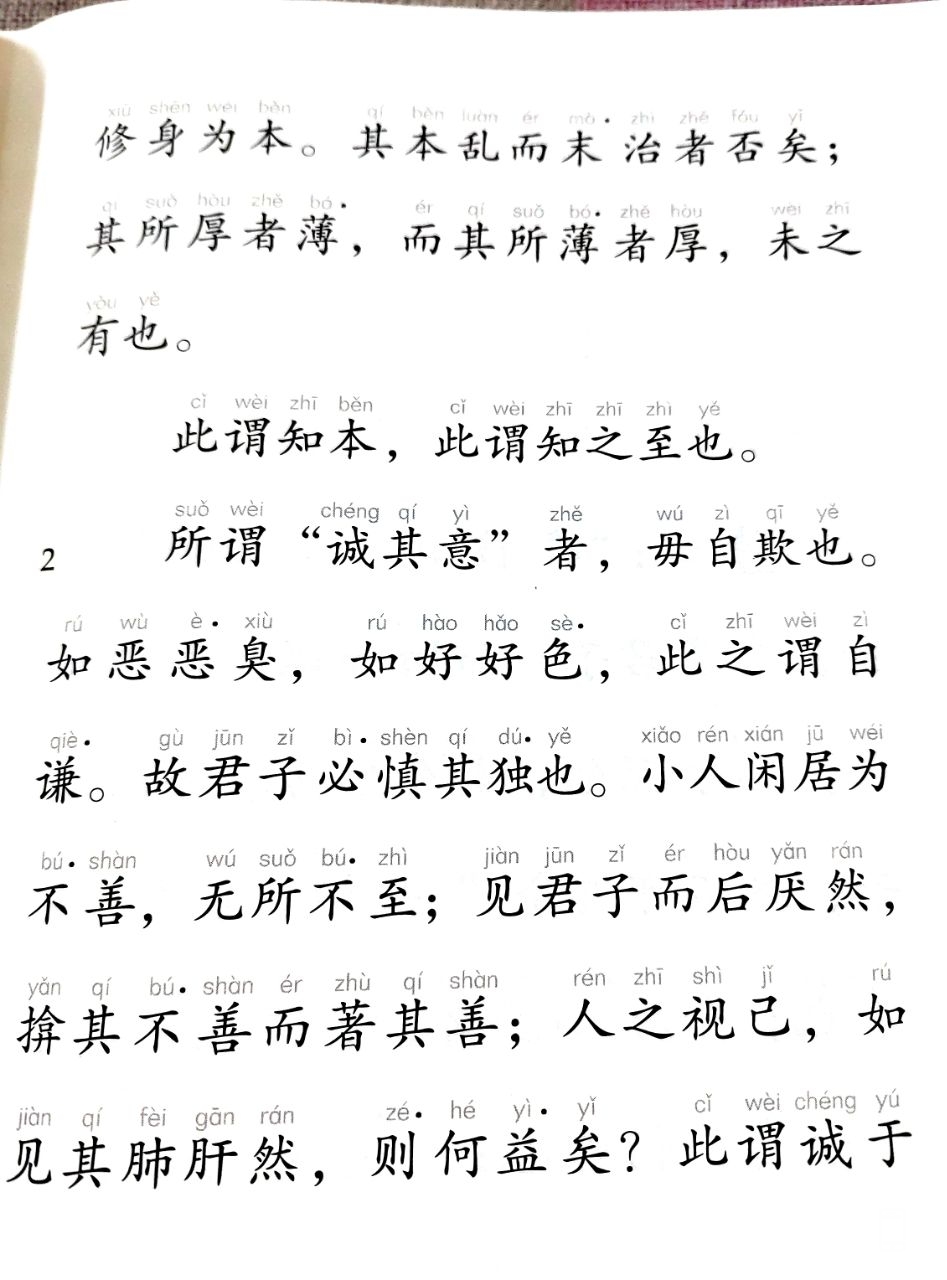 xiū shēn wéi běn qí běn luàn ér mò• zhì zhě fǒu yǐ
修身为本。其本乱而末治者否矣；
qí suǒ hòu zhě bó• ér qí suǒ bó• zhě hòu wèi zhī
其所厚者薄，而其所薄者厚，未之
yǒu yě
有也。
cǐ wèi zhī běn cǐ wèi zhī zhī zhì yé
此谓知本，此谓知之至也。
suǒ wèi chéng qí yì zhě wú zì qī yě
2 所谓“诚其意”者，毋自欺也。
rú wù è• xiù rú hào hǎo sè• cǐ zhī wèi zì
如恶恶臭，如好好色，此之谓自
qiè• gù jūn zǐ bì• shèn qí dú• yě xiǎo rén xián jū wéi
谦。故君子必慎其独也。小人闲居为
bú• shàn wú suǒ bú• zhì jiàn jūn zǐ ér hòu yǎn rán
不善，无所不至；见君子而后厌然，
yǎn qí bú• shàn ér zhù qí shàn rén zhī shì jǐ rú
揜其不善而著其善；人之视己，如
jiàn qí fèi gān rán zé• hé yì• yǐ cǐ wèi chéng yú
见其肺肝然，则何益矣？此谓诚于